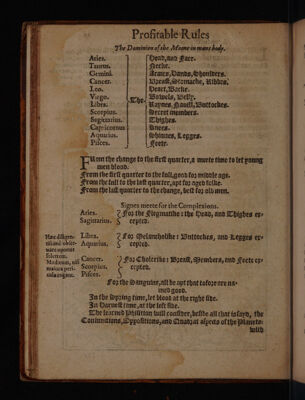 Profitable Rules
The Dominion of the Moone in mans body.
Aries. Head, and Face.
Taurus. Necke.
Gemini. Armes, Hands, Shoulders.
Cancer. Breast, Stomacke, Ribbes.
Leo. Heart, Backe.
Virgo. The Bowels, Belly.
Libra. Raynes, Navell, Buttockes.
Scorpius. Secret members.
Sagittarius. Thighes.
Capricornus Knees.
Aquarius. Shinnes, Legges.
Pisces. Feete.
From the change to the first quarter, a meete time to let young
men blood.
From the first quarter to the full, good for middle age.
From the full to the last quarter, apt for aged folke.
From the last quarter to the change, best for old men.
Signes meete for the Complexions.
Aries. For the Flegmatike: the Head, and Thighes ex-
Sagitarius. cepted.
Libra. For Melancholike: Buttockes, and Legges ex-
Aquarius. cepted.
Cancer. For Cholerike: Breast, Members, and Feete ex-
Scorpius. cepted.
Pisces.
For the Sanguine, all be apt that tofore are na-
med good.
In the Spring time, let blood at the right side.
In Harvest time, at the left side.
The learned Phisitian will consider, beside all that is sayd, the
Coniunctions, Oppositions, and Quadrat aspects of the Planets
with